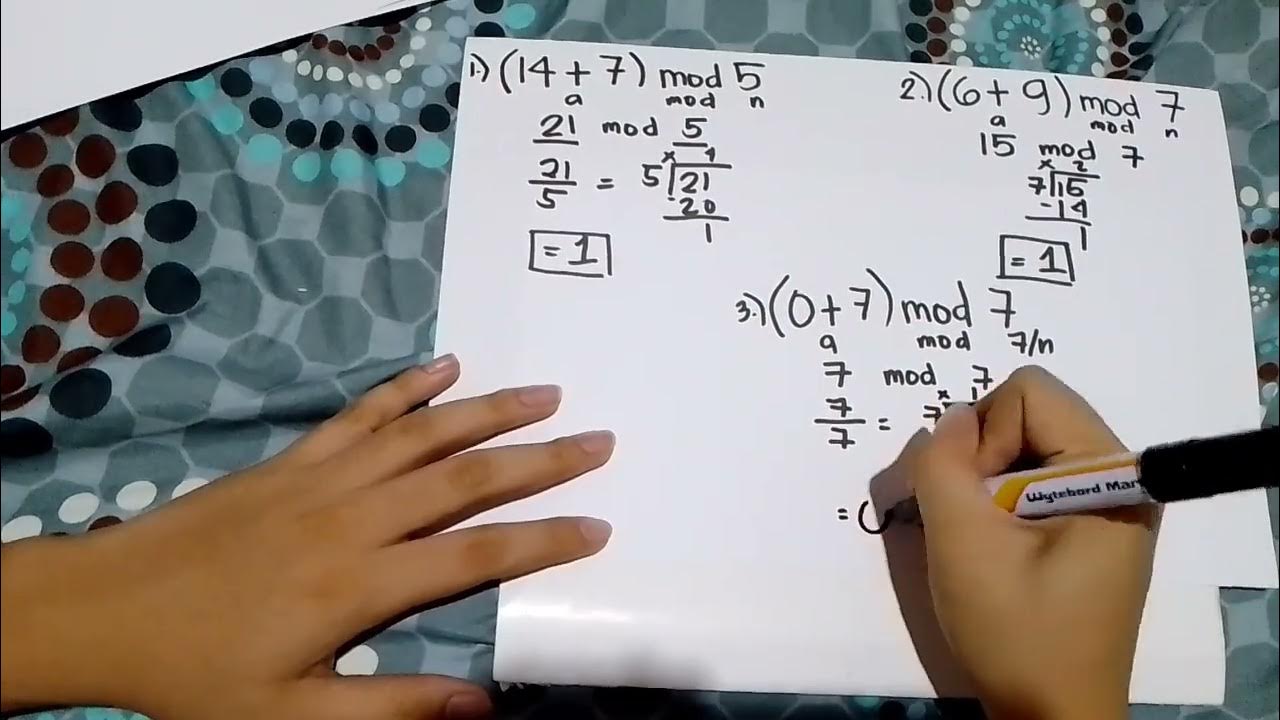 1.) (14 + 7) mod 5
a mod n
21 mod 5
x 4
21/5 = 5 21
-20
1
= 1
2.) (6 + 9) mod 7
a mod n
15 mod 7
x 2
7 15
-14
1
= 1
3.) (0 + 7) mod 7
a mod 7/n
7 mod 7
x 1
7/7 = 7
= 0
Wytebord Mar